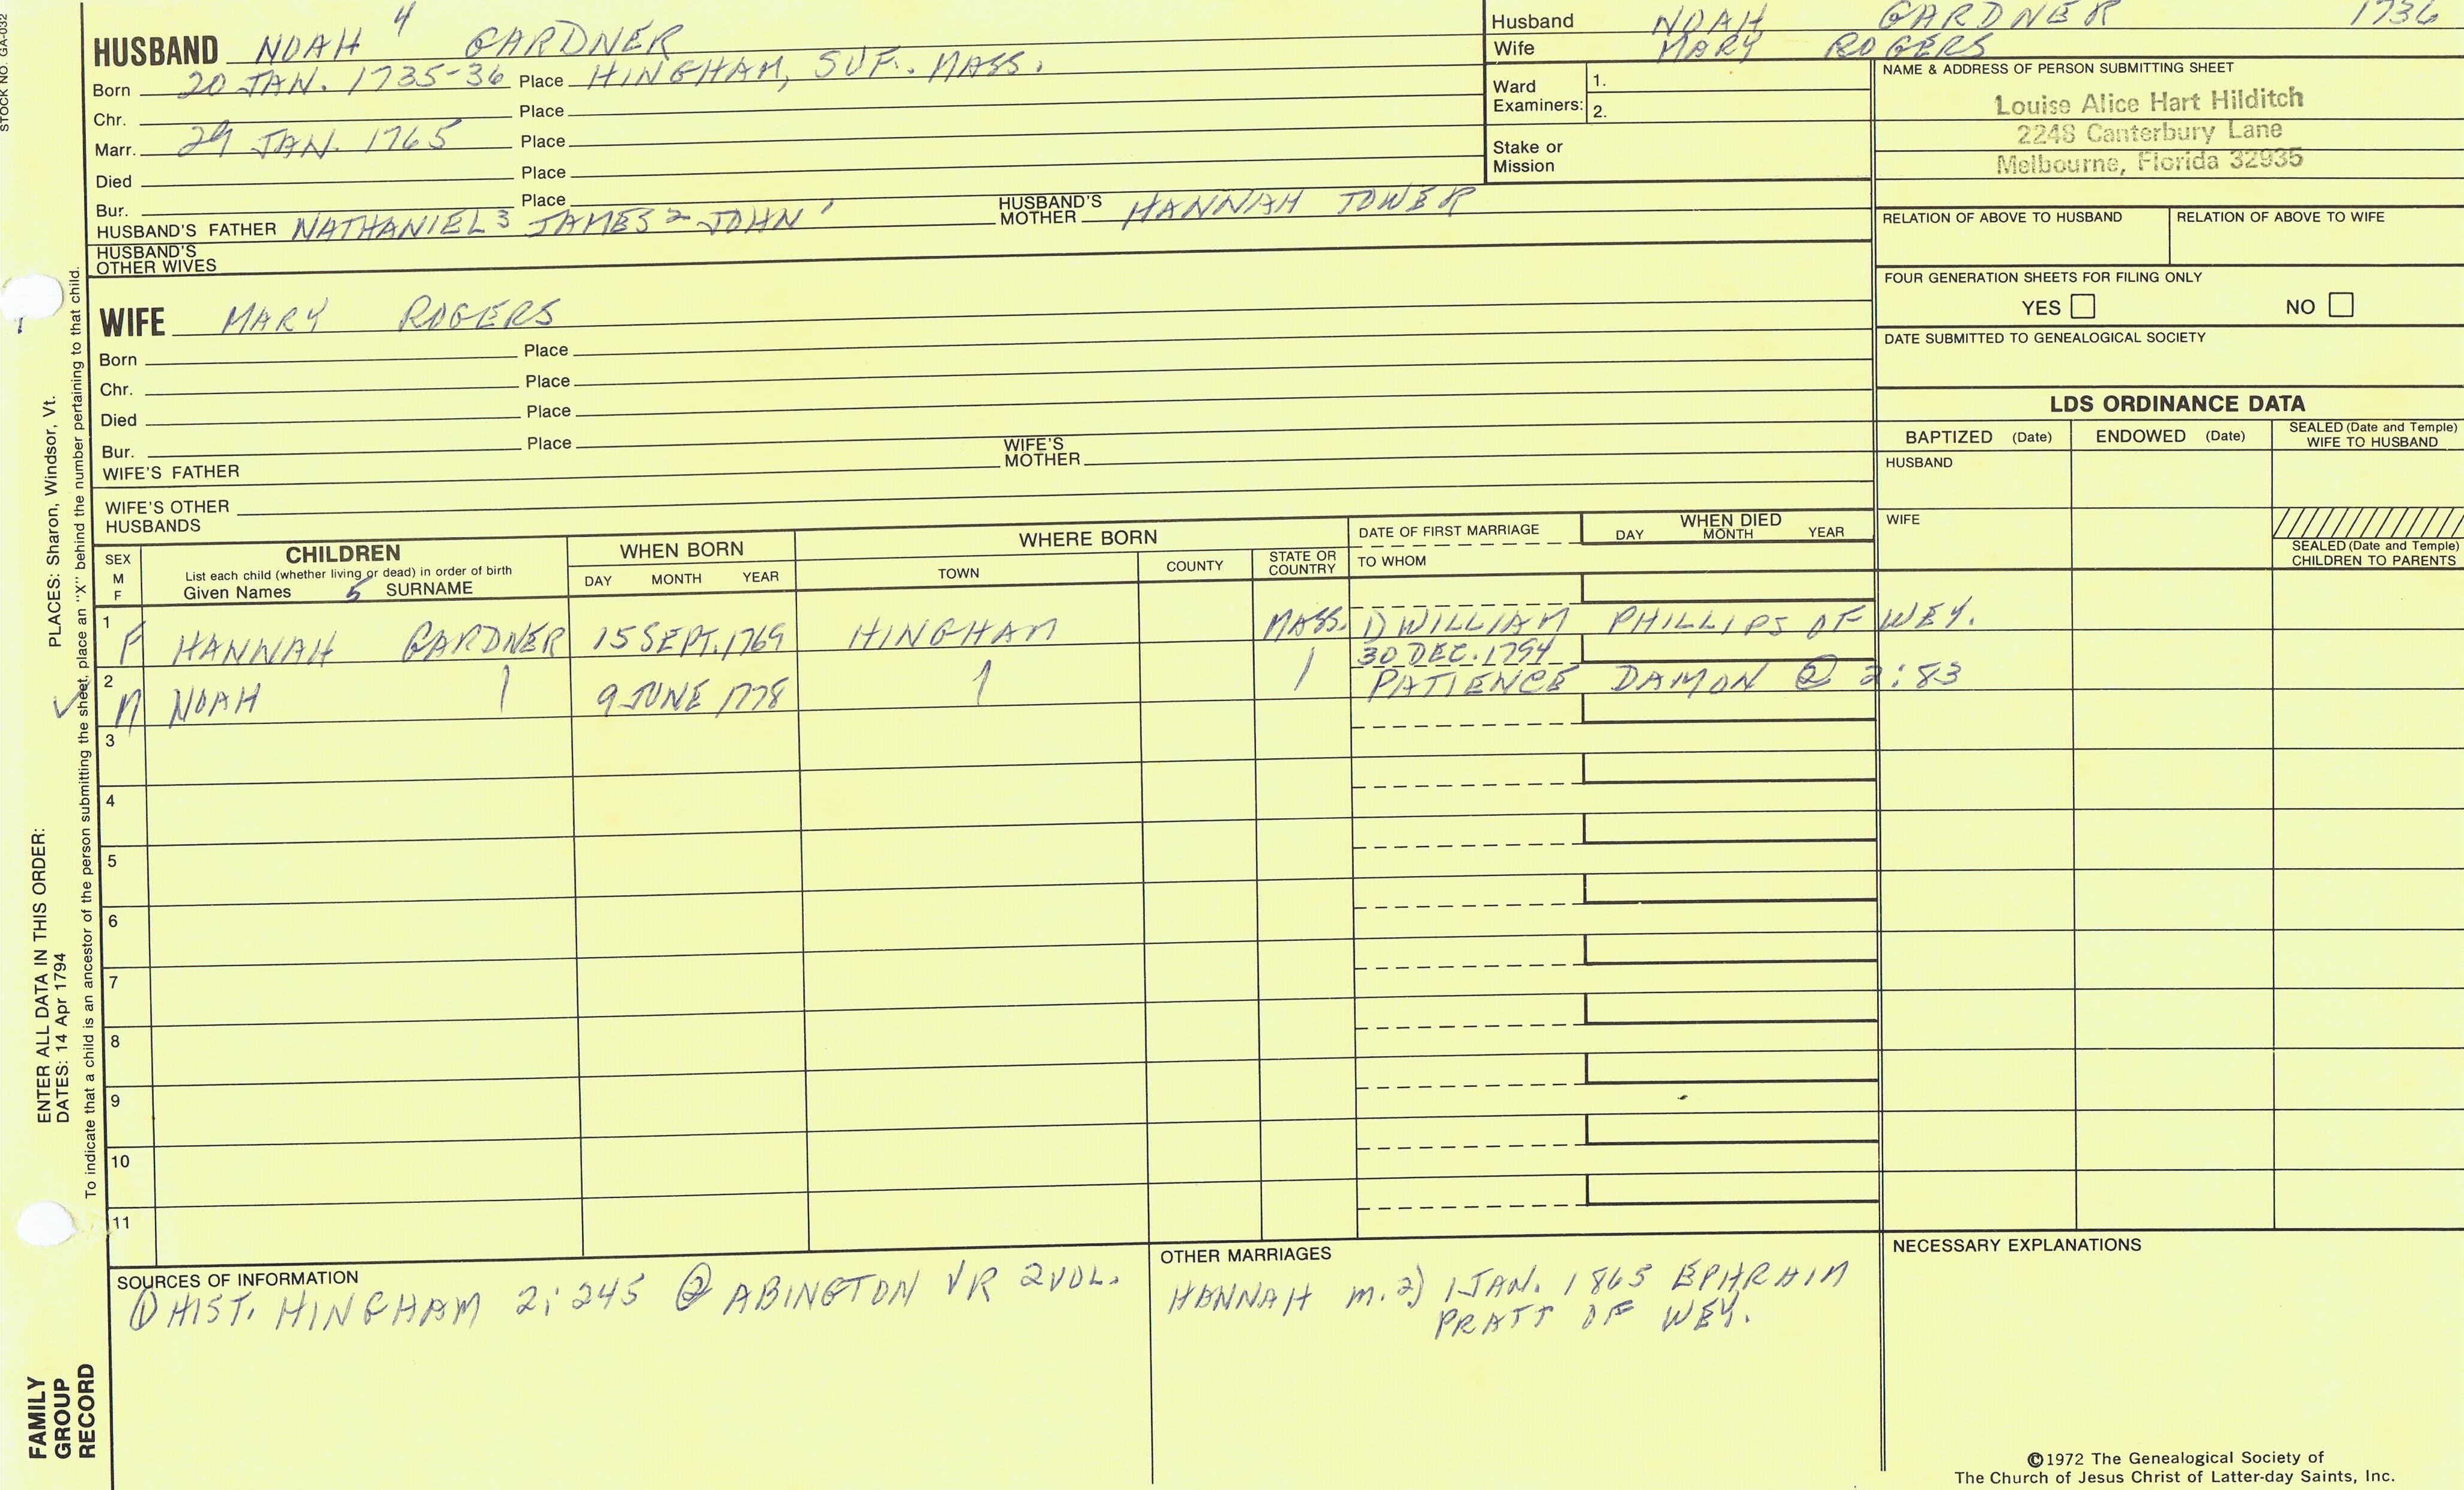 STOCK NO. GA-032
HUSBAND NOAH 4 GARDNER
Born 20 JAN. 1735-36 Place HINGHAM, SUF. MASS.
Chr. Place
Marr. 29 JAN. 1765 Place
Died Place
Bur. Place
HUSBAND'S FATHER NATHANIEL 3 JAMES 2 JOHN 1 HUSBAND'S MOTHER HANNAH TOWER
HUSBAND'S OTHER WIVES
Husband NOAH GARDNER 1736
Wife MARY ROGERS
Ward Examiners: 1.
2.
Stake or Mission
NAME & ADDRESS OF PERSON SUBMITTING SHEET
Louise Alice Hart Hilditch
2248 Canterbury Lane
Melbourne, Florida 32935
RELATION OF ABOVE TO HUSBAND RELATION OF ABOVE TO WIFE
FOUR GENERATION SHEETS FOR FILING ONLY
YES NO
DATE SUBMITTED TO GENEALOGICAL SOCIETY
WIFE MARY ROGERS
Born Place
Chr. Place
Died Place
Bur. Place
WIFE'S FATHER WIFE'S MOTHER
WIFE'S OTHER HUSBANDS
LDS ORDINANCE DATA
BAPTIZED (Date) ENDOWED (Date) SEALED (Date and Temple) WIFE TO HUSBAND
HUSBAND
WIFE
SEALED (Date and Temple) CHILDREN TO PARENTS
SEX M F
CHILDREN
List each child (whether living or dead) in order of birth
Given Names 5 SURNAME
WHEN BORN
DAY MONTH YEAR
WHERE BORN
TOWN COUNTY STATE OR COUNTRY
DATE OF FIRST MARRIAGE
TO WHOM
WHEN DIED
DAY MONTH YEAR
1 F HANNAH GARDNER 15 SEPT. 1769 HINGHAM MASS. 1) WILLIAM PHILLIPS OF WEY.
30 DEC. 1794
2 M NOAH 9 JUNE 1778 PATIENCE DAMON ② 2:83
3
4
5
6
7
8
9
10
11
SOURCES OF INFORMATION
① HIST. HINGHAM 2:245 ② ABINGTON VR 2VOL.
OTHER MARRIAGES
HANNAH m. 2) 1 JAN. 1865 EPHRAIM
PRATT OF WEY.
NECESSARY EXPLANATIONS
©1972 The Genealogical Society of
The Church of Jesus Christ of Latter-day Saints, Inc.
ENTER ALL DATA IN THIS ORDER:
DATES: 14 Apr 1794
PLACES: Sharon, Windsor, Vt.
To indicate that a child is an ancestor of the person submitting the sheet, place an "X" behind the number pertaining to that child.
FAMILY
GROUP
RECORD